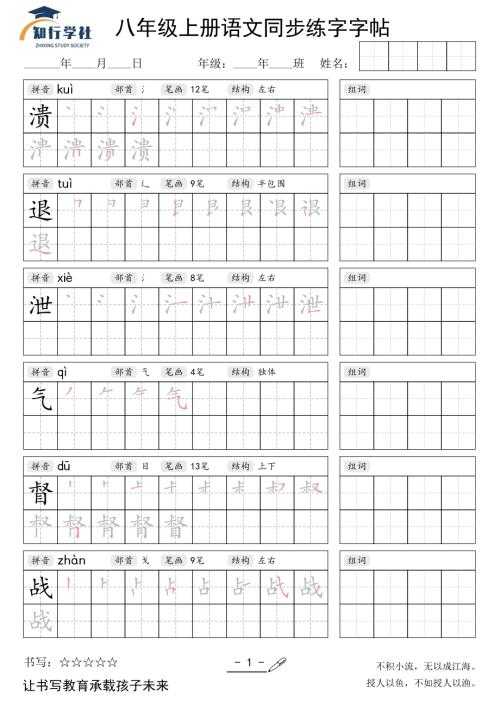 知行学社
ZHIXING STUDY SOCIETY
八年级上册语文同步练字字帖
____年____月____日 年级：____年____班 姓名：
拼音 kuì 部首 氵 笔画 12笔 结构 左右 组词
溃
拼音 tuì 部首 辶 笔画 9笔 结构 半包围 组词
退
拼音 xiè 部首 氵 笔画 8笔 结构 左右 组词
泄
拼音 qì 部首 气 笔画 4笔 结构 独体 组词
气
拼音 dū 部首 目 笔画 13笔 结构 上下 组词
督
拼音 zhàn 部首 戈 笔画 9笔 结构 左右 组词
战
书写：☆☆☆☆☆
- 1 -
不积小流，无以成江海。
让书写教育承载孩子未来
授人以鱼，不如授人以渔。